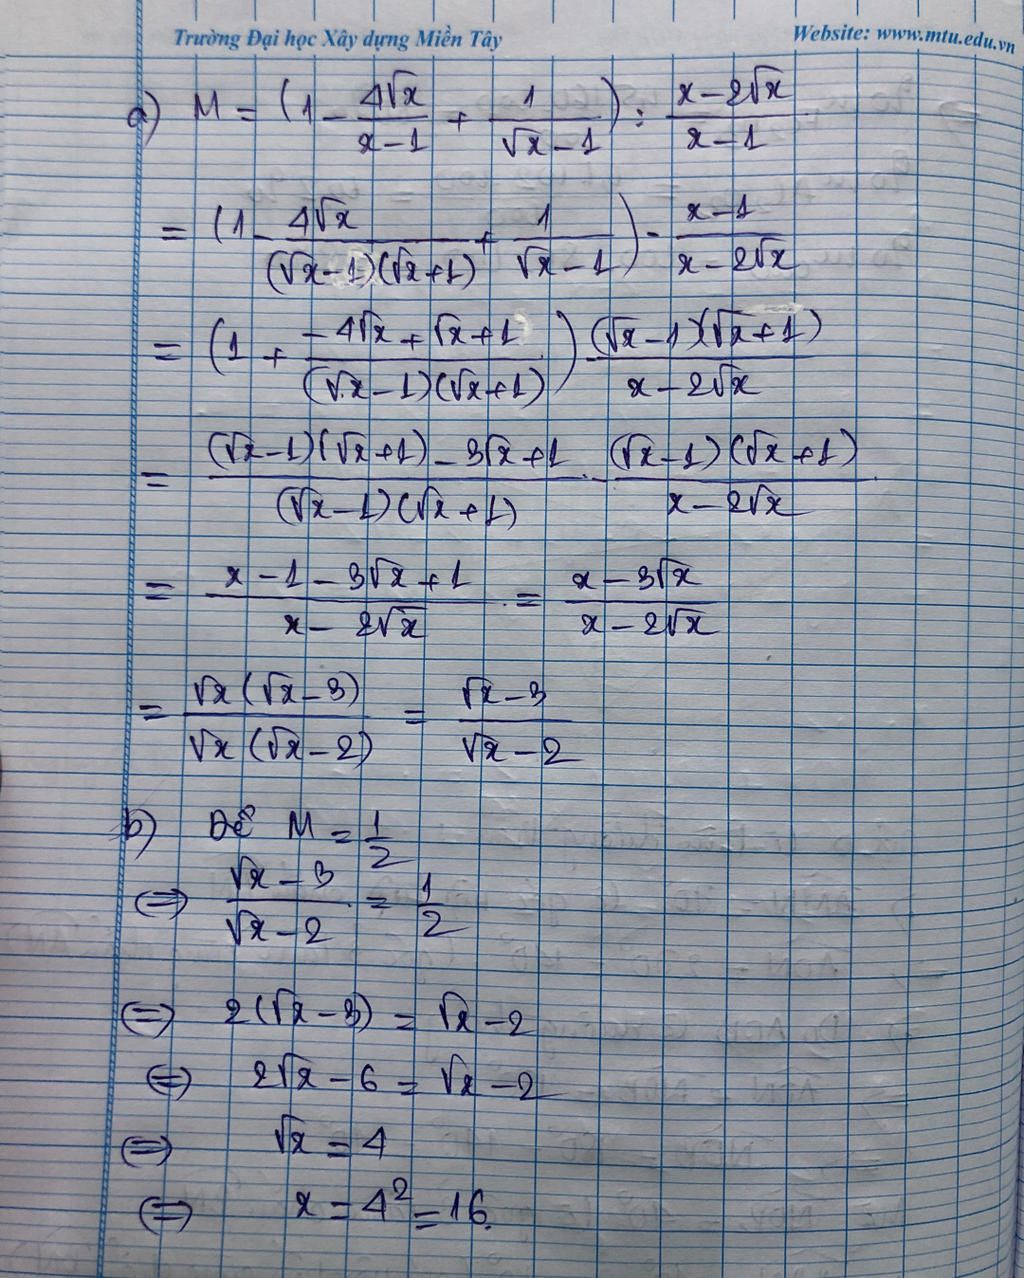 Trường Đại học Xây dựng Miền Tây Website: www.mtu.edu.vn
a) M = (1 - 4√x/(x-1) + 1/(√x-1)) : (x-2√x)/(x-1)
= (1 - 4√x/((√x-1)(√x+1)) + 1/(√x-1)) · (x-1)/(x-2√x)
= (1 + (-4√x+√x+1)/((√x-1)(√x+1))) (√x-1)(√x+1)/(x-2√x)
= ((√x-1)(√x+1)-3√x+1)/((√x-1)(√x+1)) · (√x-1)(√x+1)/(x-2√x)
= (x-1-3√x+1)/(x-2√x) = (x-3√x)/(x-2√x)
= √x(√x-3)/(√x(√x-2)) = (√x-3)/(√x-2)
b) Để M = 1/2
⇔ (√x-3)/(√x-2) = 1/2
⇔ 2(√x-3) = √x-2
⇔ 2√x-6 = √x-2
⇔ √x = 4
⇔ x = 4² = 16.